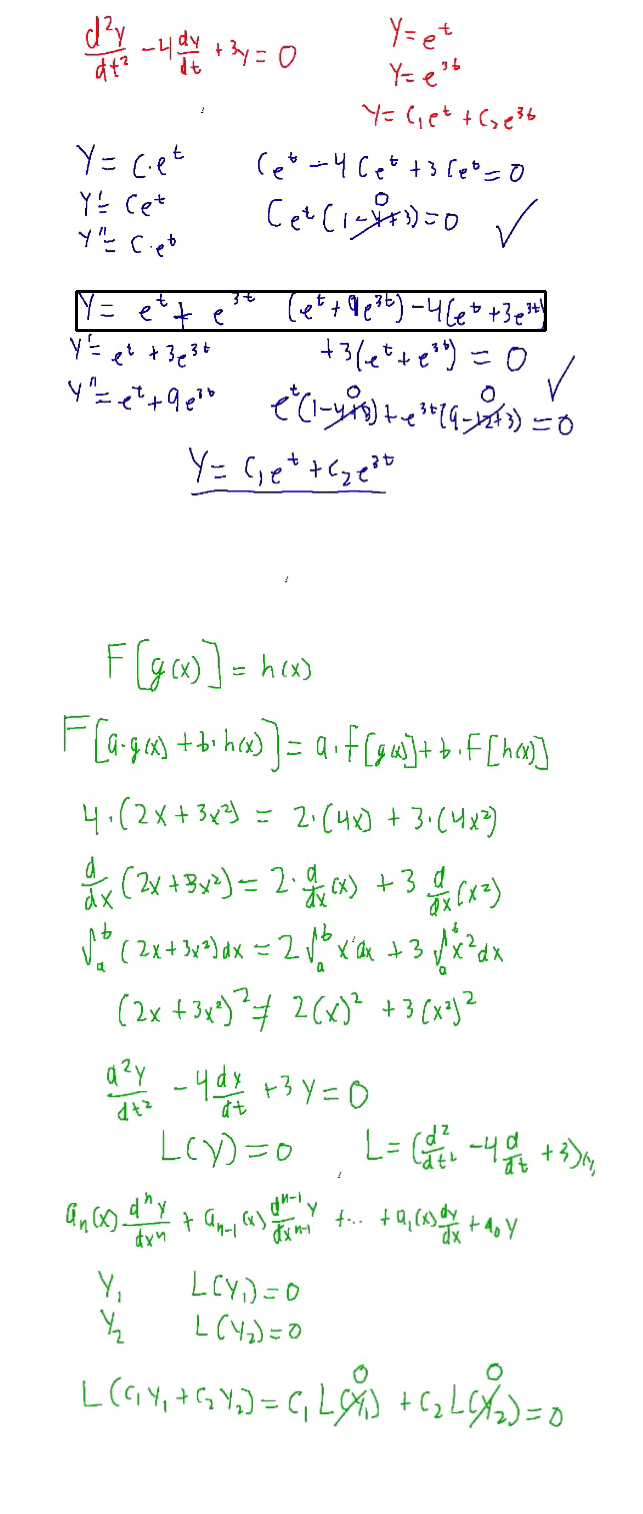 d²y/dt² - 4 dy/dt + 3y = 0
y = e^t
y = e^3t
y = C₁e^t + C₂e^3t
y = C·e^t
Ce^t - 4Ce^t + 3Ce^t = 0
y' = Ce^t
Ce^t(1-4+3) = 0 ✓
0
y'' = C·e^t
y = e^t + e^3t
(e^t + 9e^3t) - 4(e^t + 3e^3t)
y' = e^t + 3e^3t
+3(e^t + e^3t) = 0 ✓
y'' = e^t + 9e^3t
e^t(1-4+3) + e^3t(9-12+3) = 0
0 0
y = C₁e^t + C₂e^3t
F[g(x)] = h(x)
F[a·g(x) + b·h(x)] = a·F[g(x)] + b·F[h(x)]
4·(2x + 3x²) = 2·(4x) + 3·(4x²)
d/dx (2x + 3x²) = 2·d/dx (x) + 3 d/dx (x²)
∫_a^b (2x + 3x²)dx = 2∫_a^b x dx + 3∫_a^b x² dx
(2x + 3x²)² ≠ 2(x)² + 3(x²)²
d²y/dt² - 4 dy/dt + 3y = 0
L(y) = 0
L = (d²/dt² - 4 d/dt + 3)
aₙ(x) dⁿy/dxⁿ + aₙ₋₁(x) dⁿ⁻¹y/dxⁿ⁻¹ + ... + a₁(x) dy/dx + a₀y
y₁ L(y₁) = 0
y₂ L(y₂) = 0
L(C₁y₁ + C₂y₂) = C₁L(y₁) + C₂L(y₂) = 0
0 0